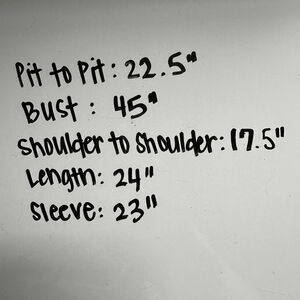 Pit to Pit: 22.5"
Bust: 45"
Shoulder to Shoulder: 17.5"
Length: 24"
Sleeve: 23"